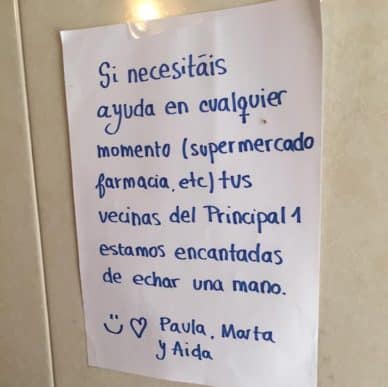 Si necesitáis
ayuda en cualquier
momento (supermercado
farmacia, etc) tus
vecinas del Principal 1
estamos encantadas
de echar una mano.
Paula, Marta
y Aida